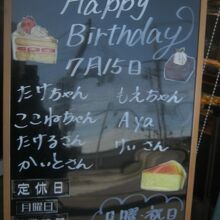 Happy
Birthday
7月15日
たけちゃん もえちゃん
ここねちゃん Aya
たけるさん けいさん
かいとさん
定休日
月曜日
日曜・祝日